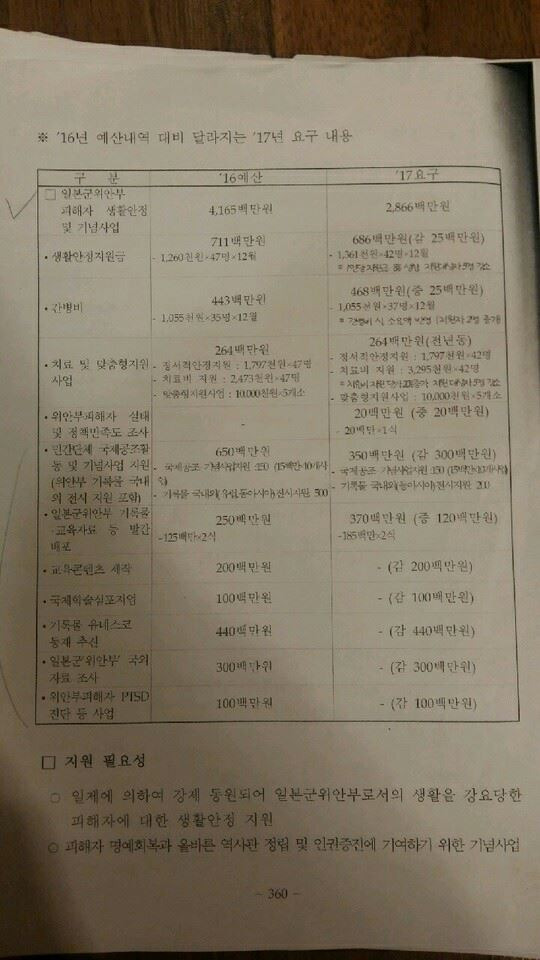 ※ '16년 예산내역 대비 달라지는 '17년 요구 내용
구 분 '16예산 '17요구
□ 일본군위안부
피해자 생활안정 4,165백만원 2,866백만원
및 기념사업
711백만원 686백만원(감 25백만원)
• 생활안정지원금 - 1,260천원×47명×12월 - 1,361천원×42명×12월
443백만원 468백만원(증 25백만원)
• 간병비 - 1,055천원×35명×12월 - 1,055천원×37명×12월
264백만원 264백만원(전년동)
• 치료 및 맞춤형지원 - 정서적안정지원 : 1,797천원×47명 - 정서적안정지원 : 1,797천원×42명
사업 - 치료비 지원 : 2,473천원×47명 - 치료비 지원 : 3,295천원×42명
- 맞춤형지원사업 : 10,000천원×5개소 - 맞춤형지원사업 : 10,000천원×5개소
• 위안부피해자 실태 - 20백만원 (증 20백만원)
및 정책만족도 조사 - 20백만×1식
• 민간단체 국제공조활 650백만원 350백만원 (감 300백만원)
동 및 기념사업 지원 - 국제공조 기념사업지원 :150 (15백만·10개사업) - 국제공조 기념사업지원 :150 (15백만·10개사업)
(위안부 기록물 국내
외 전시 지원 포함) - 기록물 국내외(유럽,동아시아)전시지원 500 - 기록물 국내외(동아시아)전시지원 200
• 일본군위안부 기록물 250백만원 370백만원 (증 120백만원)
·교육자료 등 발간 -125백만×2식 -185백만×2식
배포
• 교육콘텐츠 제작 200백만원 - (감 200백만원)
• 국제학술심포지엄 100백만원 - (감 100백만원)
• 기록물 유네스코 440백만원 - (감 440백만원)
등재 추진
• 일본군'위안부' 국외 300백만원 - (감 300백만원)
자료 조사
• 위안부피해자 PTSD 100백만원 - (감 100백만원)
진단 등 사업
□ 지원 필요성
○ 일제에 의하여 강제 동원되어 일본군위안부로서의 생활을 강요당한
피해자에 대한 생활안정 지원
○ 피해자 명예회복과 올바른 역사관 정립 및 인권증진에 기여하기 위한 기념사업
- 360 -